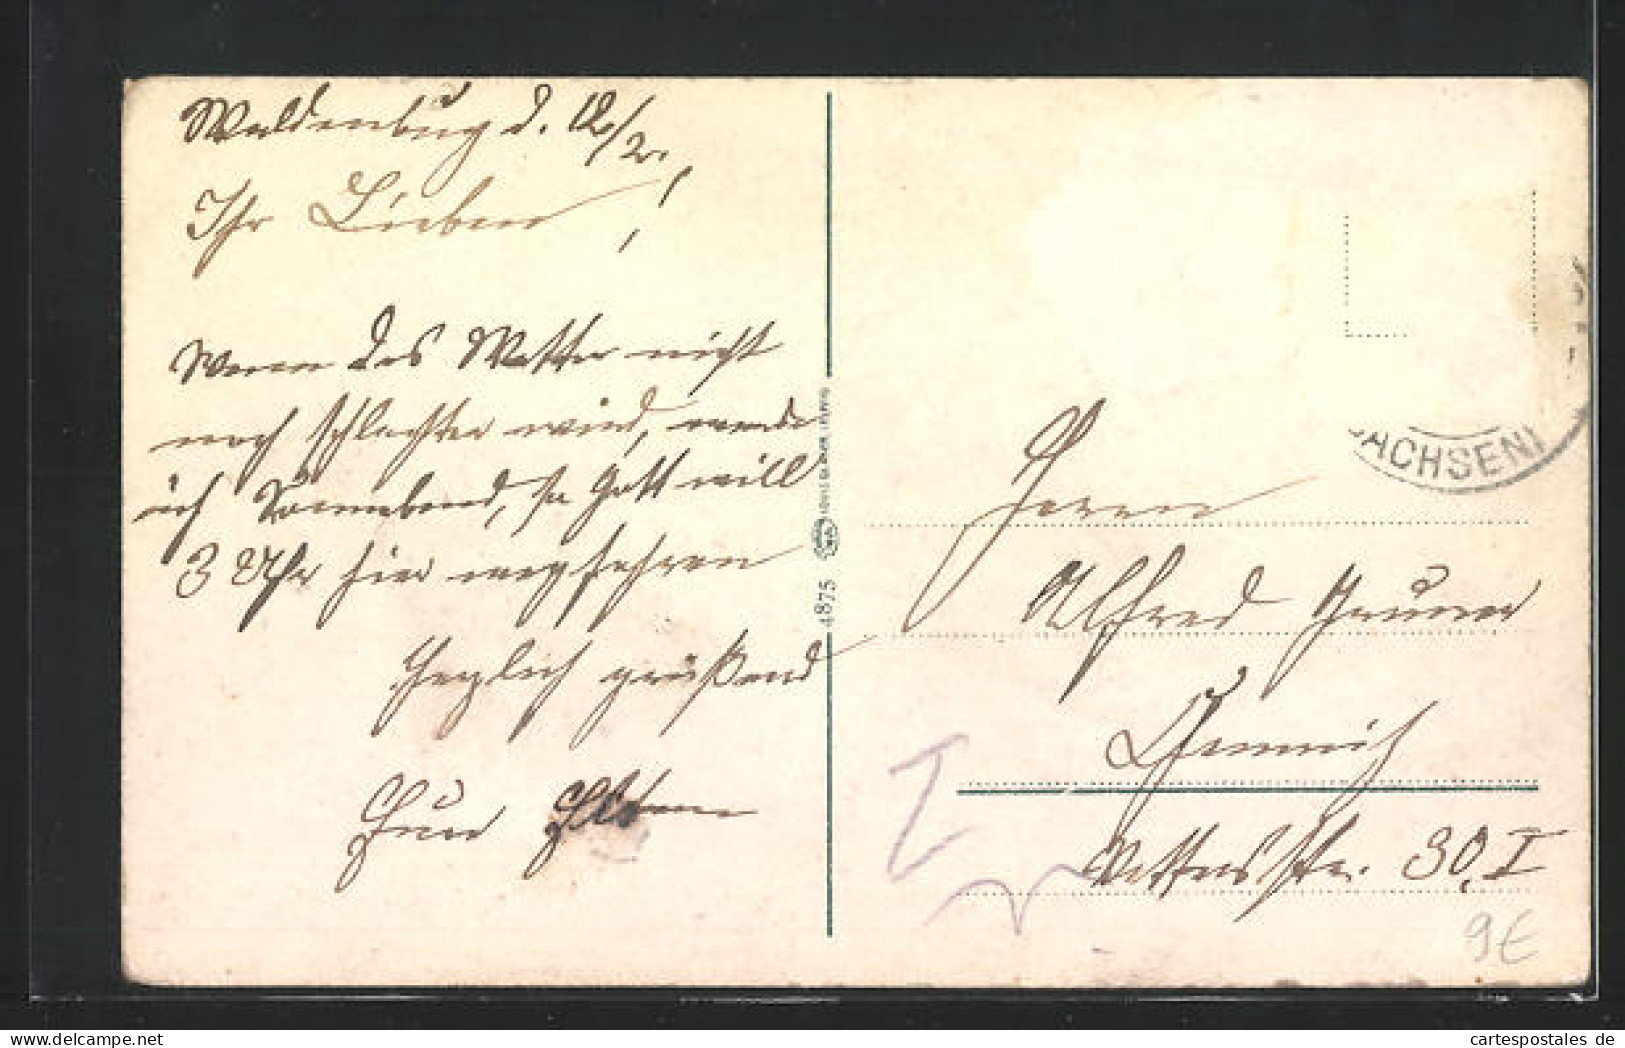 Waldenburg d. 12/2.
Ihr Lieben!
Wenn das Wetter nicht
noch schlechter wird, werde
ich Sonnabend, so Gott will
3 Uhr hier wegfahren
Herzlich grüßend
Eure
4875
SACHSEN
Herrn
Alfred Gruner
Chemnitz
30, I
9€
cartespostales de